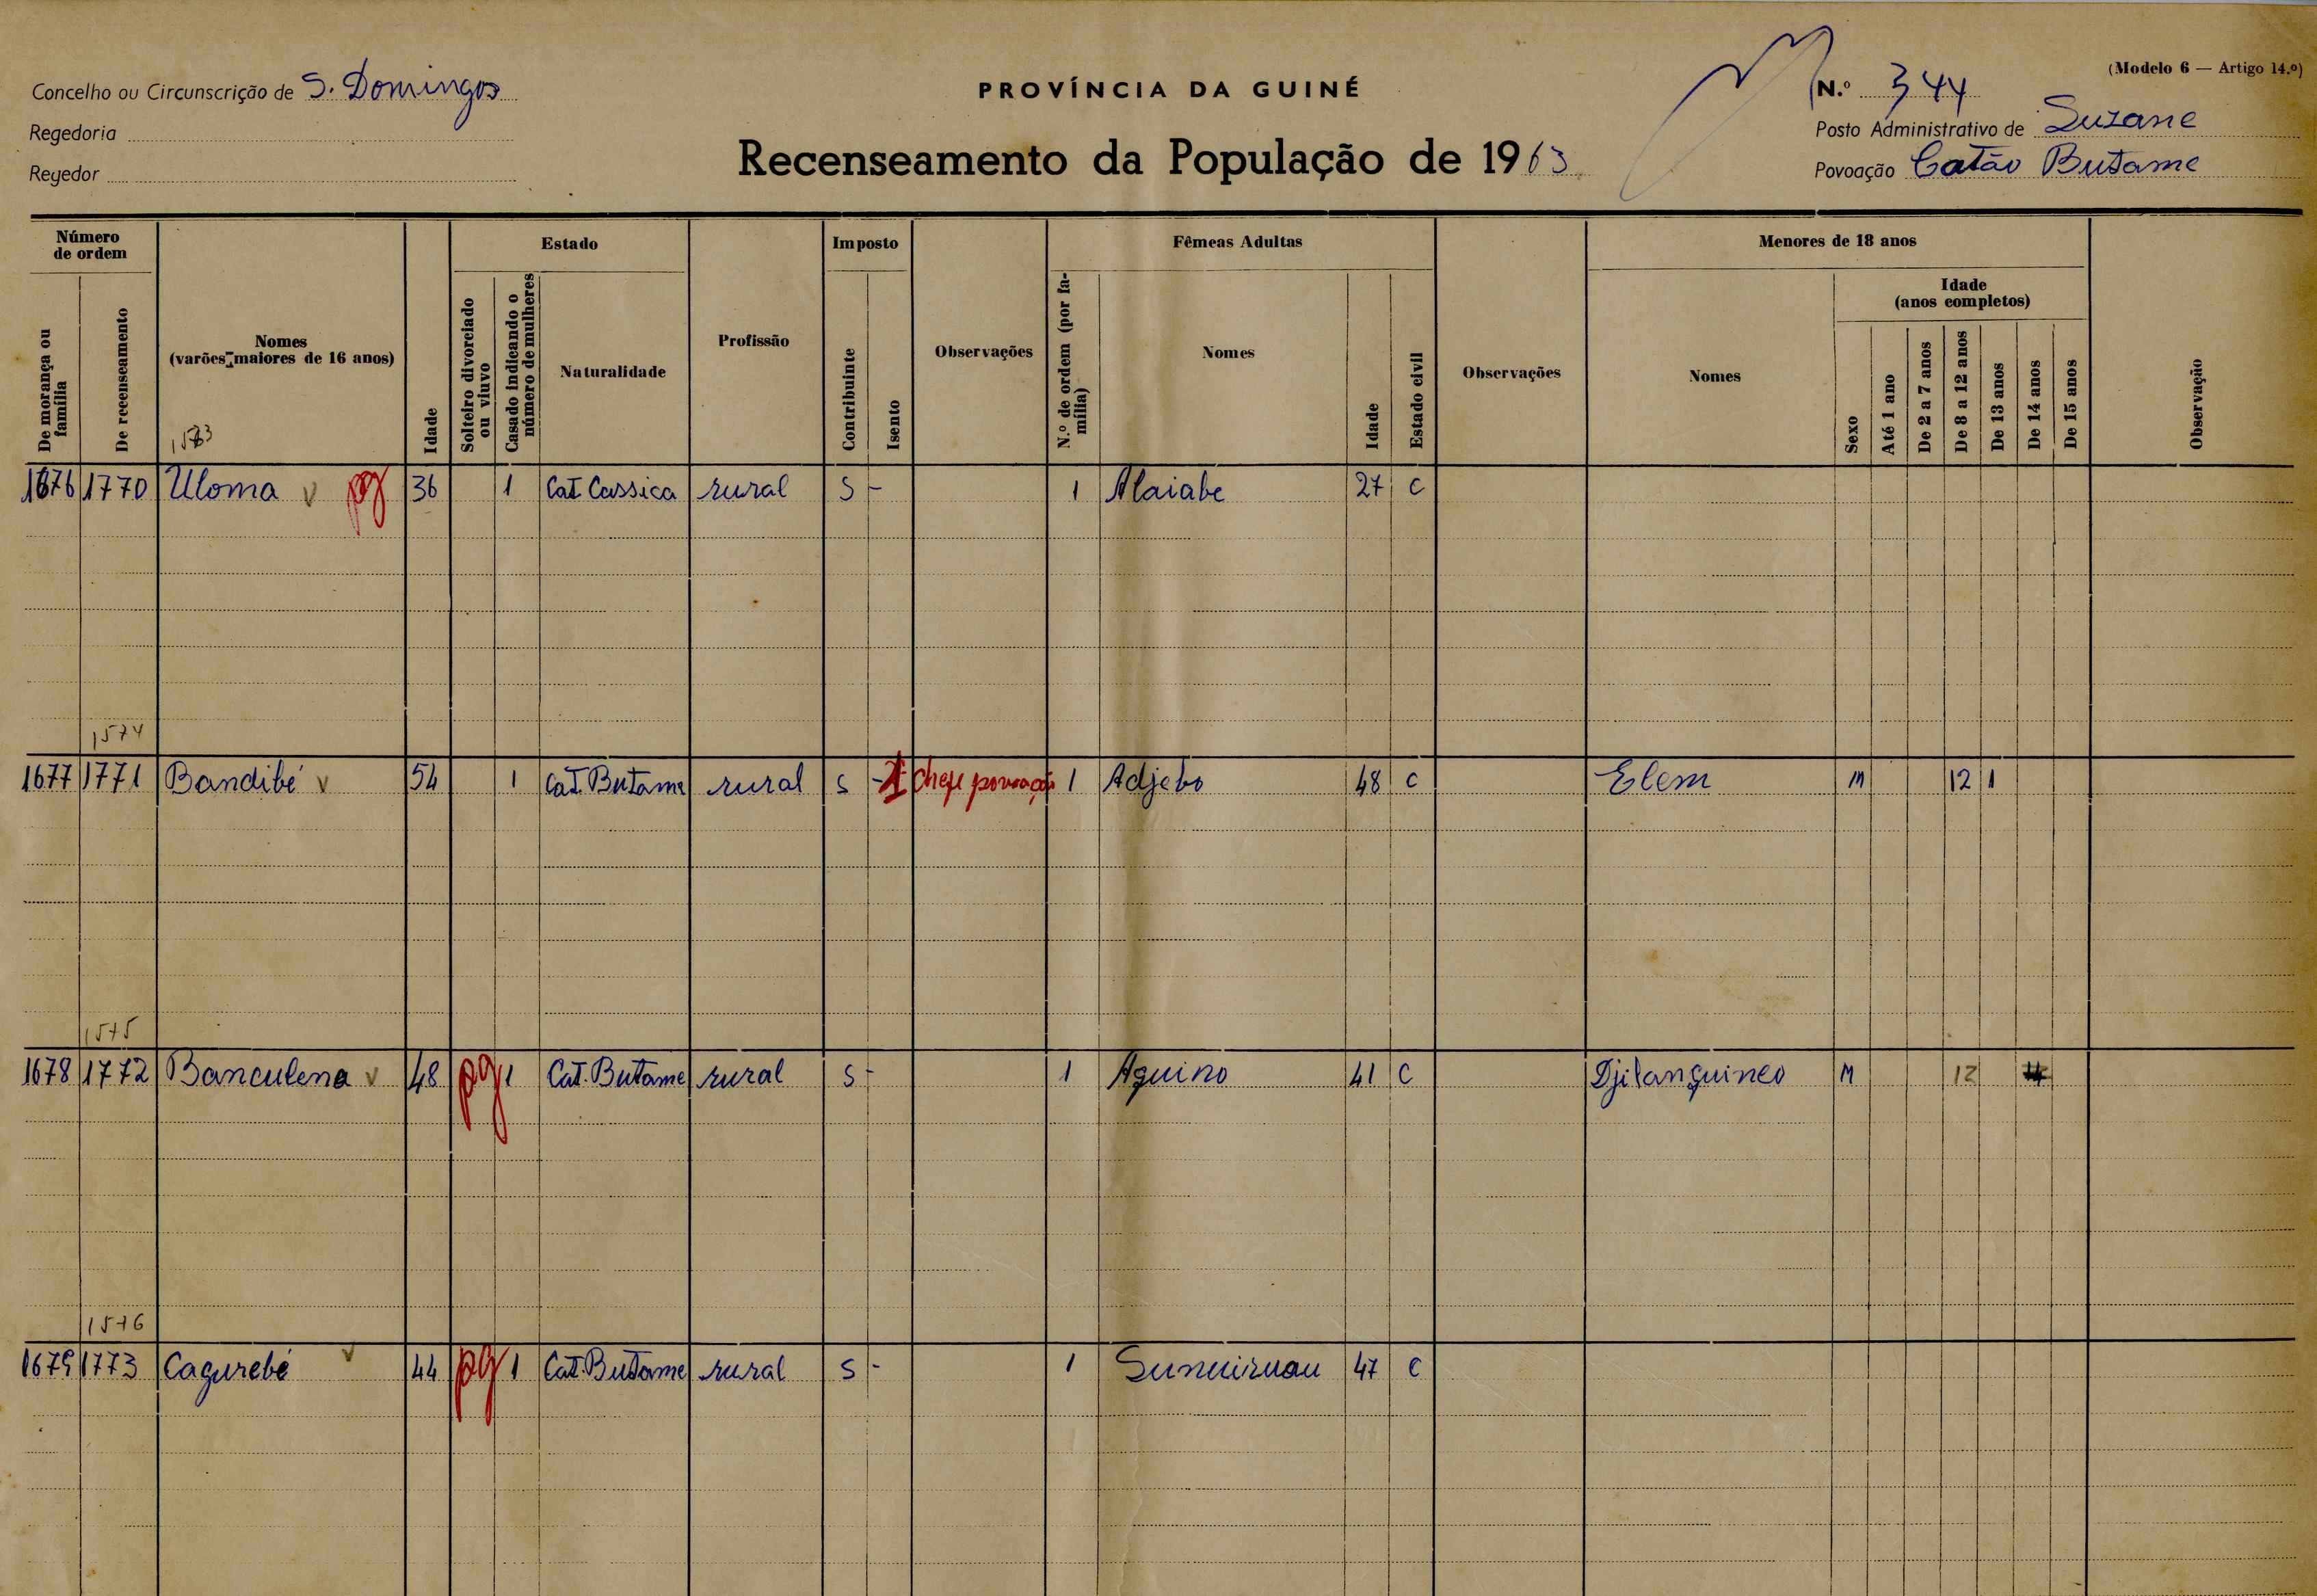 (Modelo 6 — Artigo 14.º)
Concelho ou Circunscrição de S. Domingos
PROVÍNCIA DA GUINÉ
N.º 344
Regedoria
Posto Administrativo de Suzane
Regedor
Recenseamento da População de 1963
Povoação Catão Butame
Número de ordem
Estado
Imposto
Fêmeas Adultas
Menores de 18 anos
De morança ou família
De recenseamento
Nomes
(varões maiores de 16 anos)
Idade
Solteiro divorciado ou viuvo
Casado indicando o número de mulheres
Naturalidade
Profissão
Contribuinte
Isento
Observações
N.º de ordem (por família)
Nomes
Idade
Estado civil
Observações
Nomes
Sexo
Idade
(anos completos)
Até 1 ano
De 2 a 7 anos
De 8 a 12 anos
De 13 anos
De 14 anos
De 15 anos
Observação
1573
1676 1770 Uloma v pg 36 1 Cat Cassica rural S - 1 Alaiabe 27 C
1574
1677 1771 Bandibé v 54 1 Cat. Butame rural S - chefe povoação 1 Adjebo 48 C Elem M 12 1
1575
1678 1772 Banculena v 48 pg 1 Cat. Butame rural S - 1 Aguino 41 C Djilanguineo M 12
1576
1679 1773 Cagurebé v 44 pg 1 Cat. Butame rural S - 1 47 C